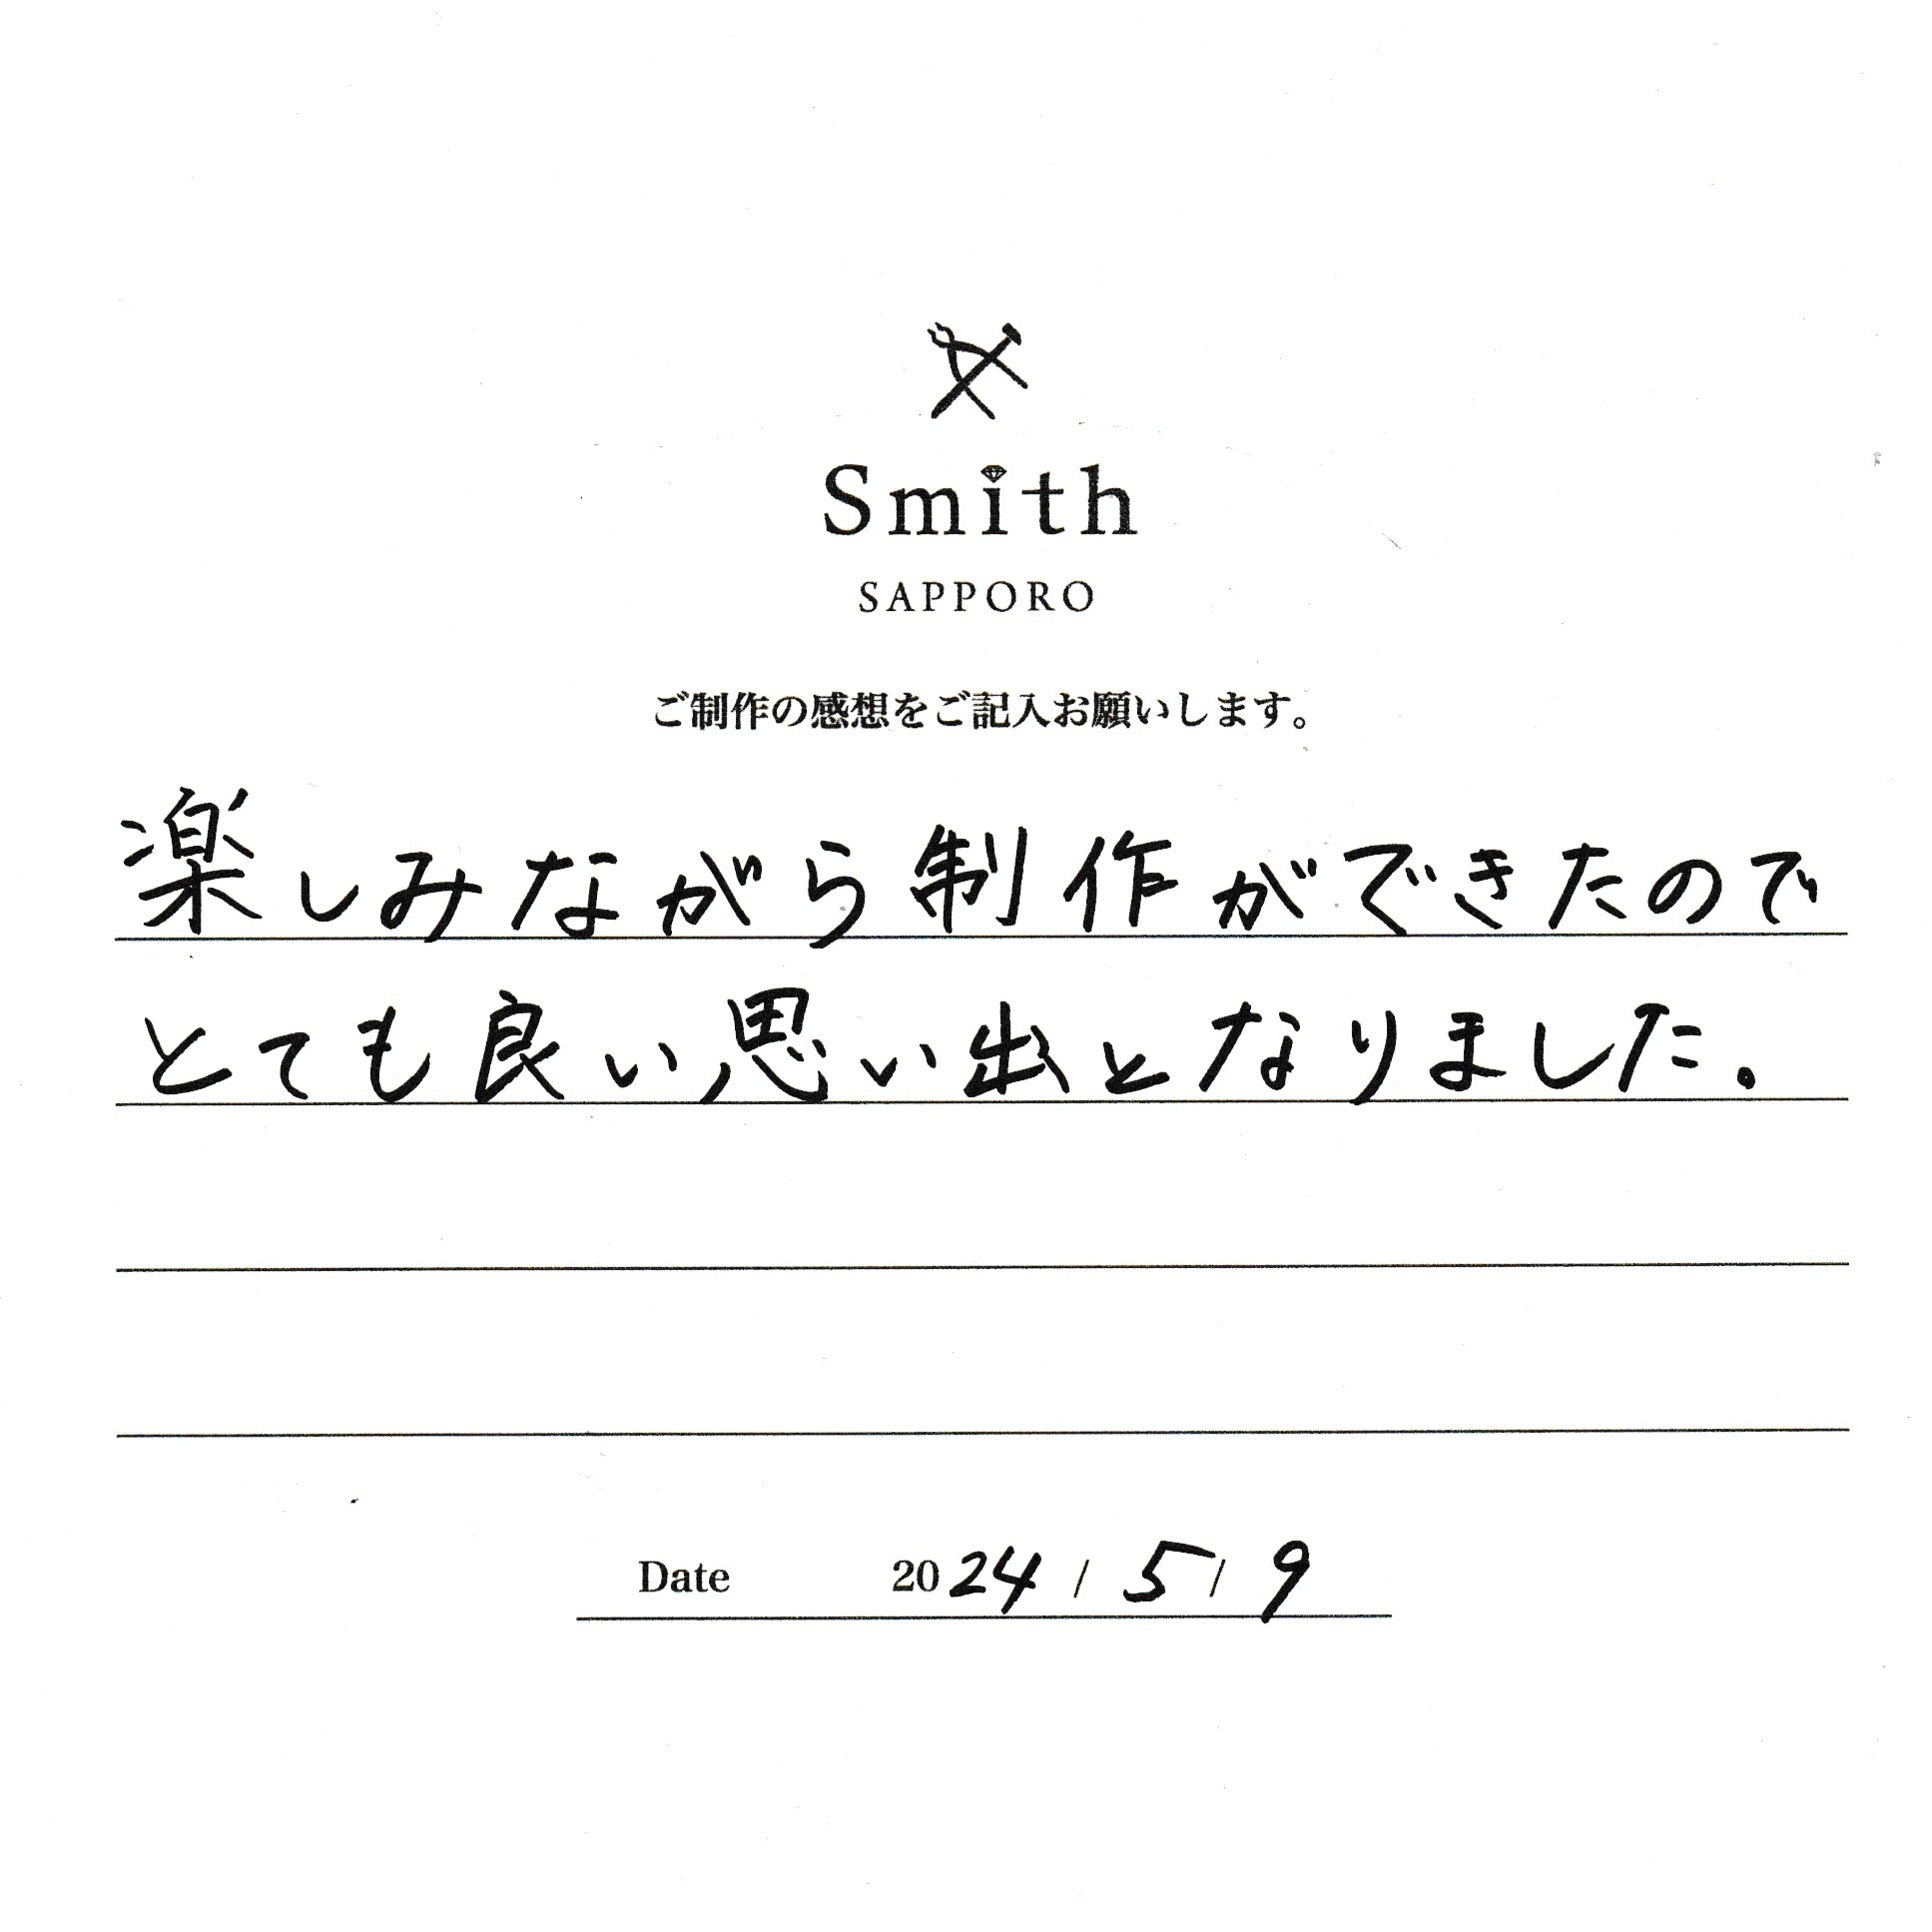 Smith
SAPPORO
ご制作の感想をご記入お願いします。
楽しみながら制作ができたので
とても良い思い出となりました。
Date 2024 / 5 / 9